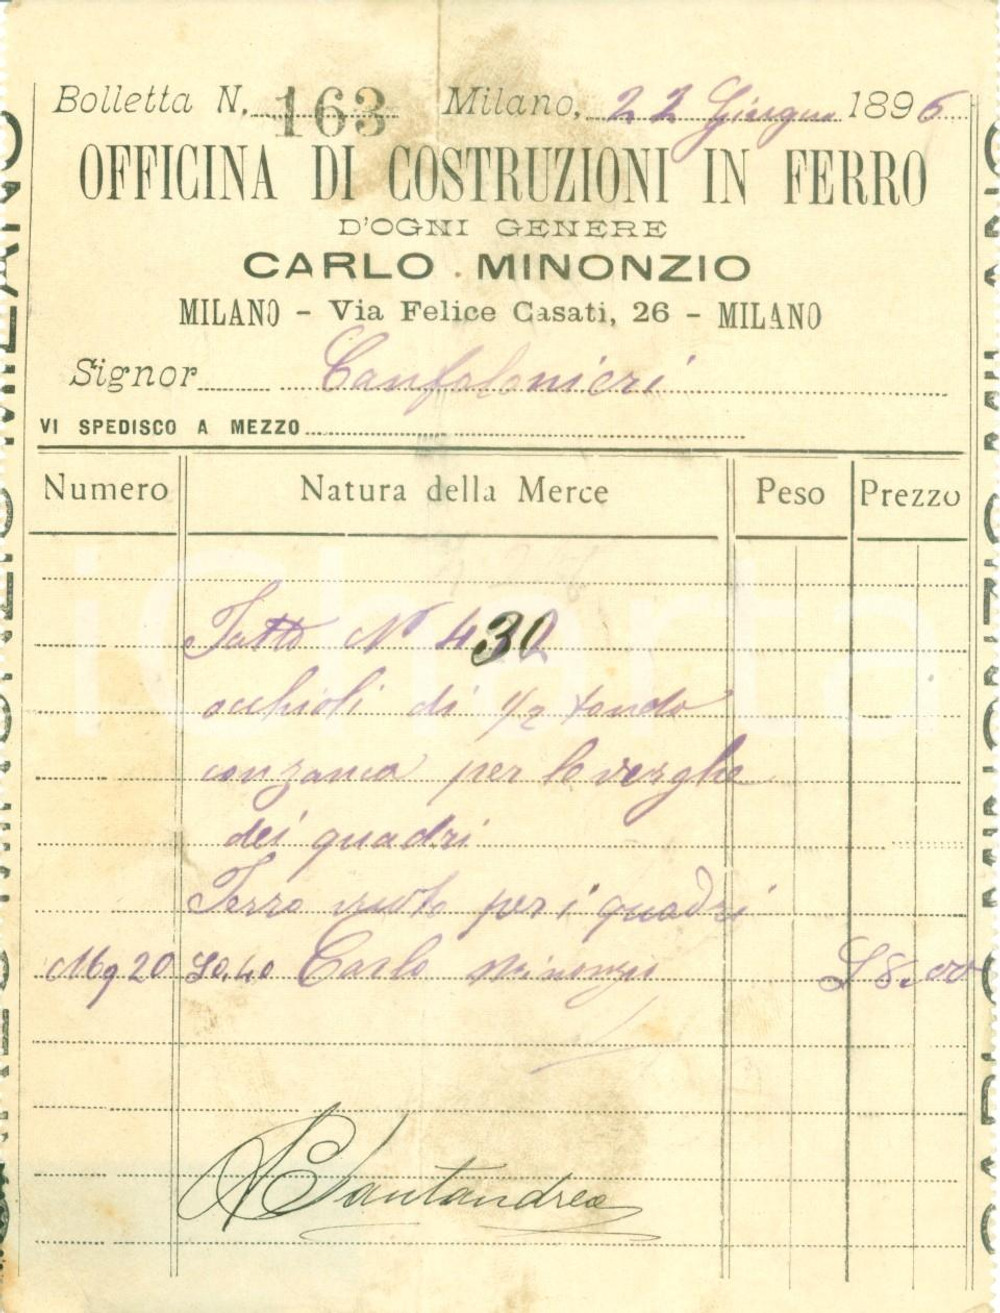 Bolletta N. 163 Milano, 22 Giugno 1896
OFFICINA DI COSTRUZIONI IN FERRO
D'OGNI GENERE
CARLO . MINONZIO
MILANO - Via Felice Casati, 26 - MILANO
Signor Confalonieri
VI SPEDISCO A MEZZO
Numero Natura della Merce Peso Prezzo
Fatto No 430
occhioli di 1/2 tondo
per le verghe
dei quadri
Ferro vuoto per i quadri
Mg 20 50.40 Carlo Minonzio L 8.00
Santandrea